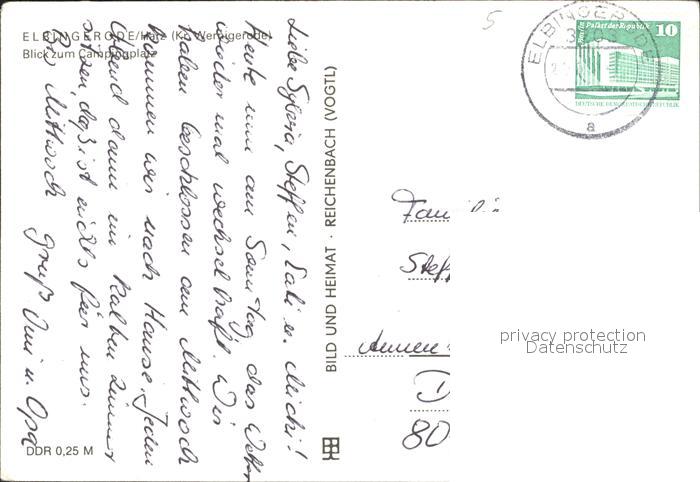 ELBINGERODE/Harz (Kr. Wernigerode)
Blick zum Campingplatz
Liebe Sylvia, Steffen, Kati u. Michi!
Heute nun am Sonntag das Wetter
wieder mal wechselhaft. Wir
haben beschlossen am Mittwoch
kommen wir nach Hause. Jeden
Abend dann im kalten Zimmer
sitzen, daß ist nichts für uns.
Bis Mittwoch Gruß Omi u. Opa
DDR 0,25 M
BILD UND HEIMAT · REICHENBACH (VOGTL)
5
ELBINGERODE
a
Palast der Republik 10
DEUTSCHE DEMOKRATISCHE REPUBLIK
Steff
D
80
privacy protection
Datenschutz